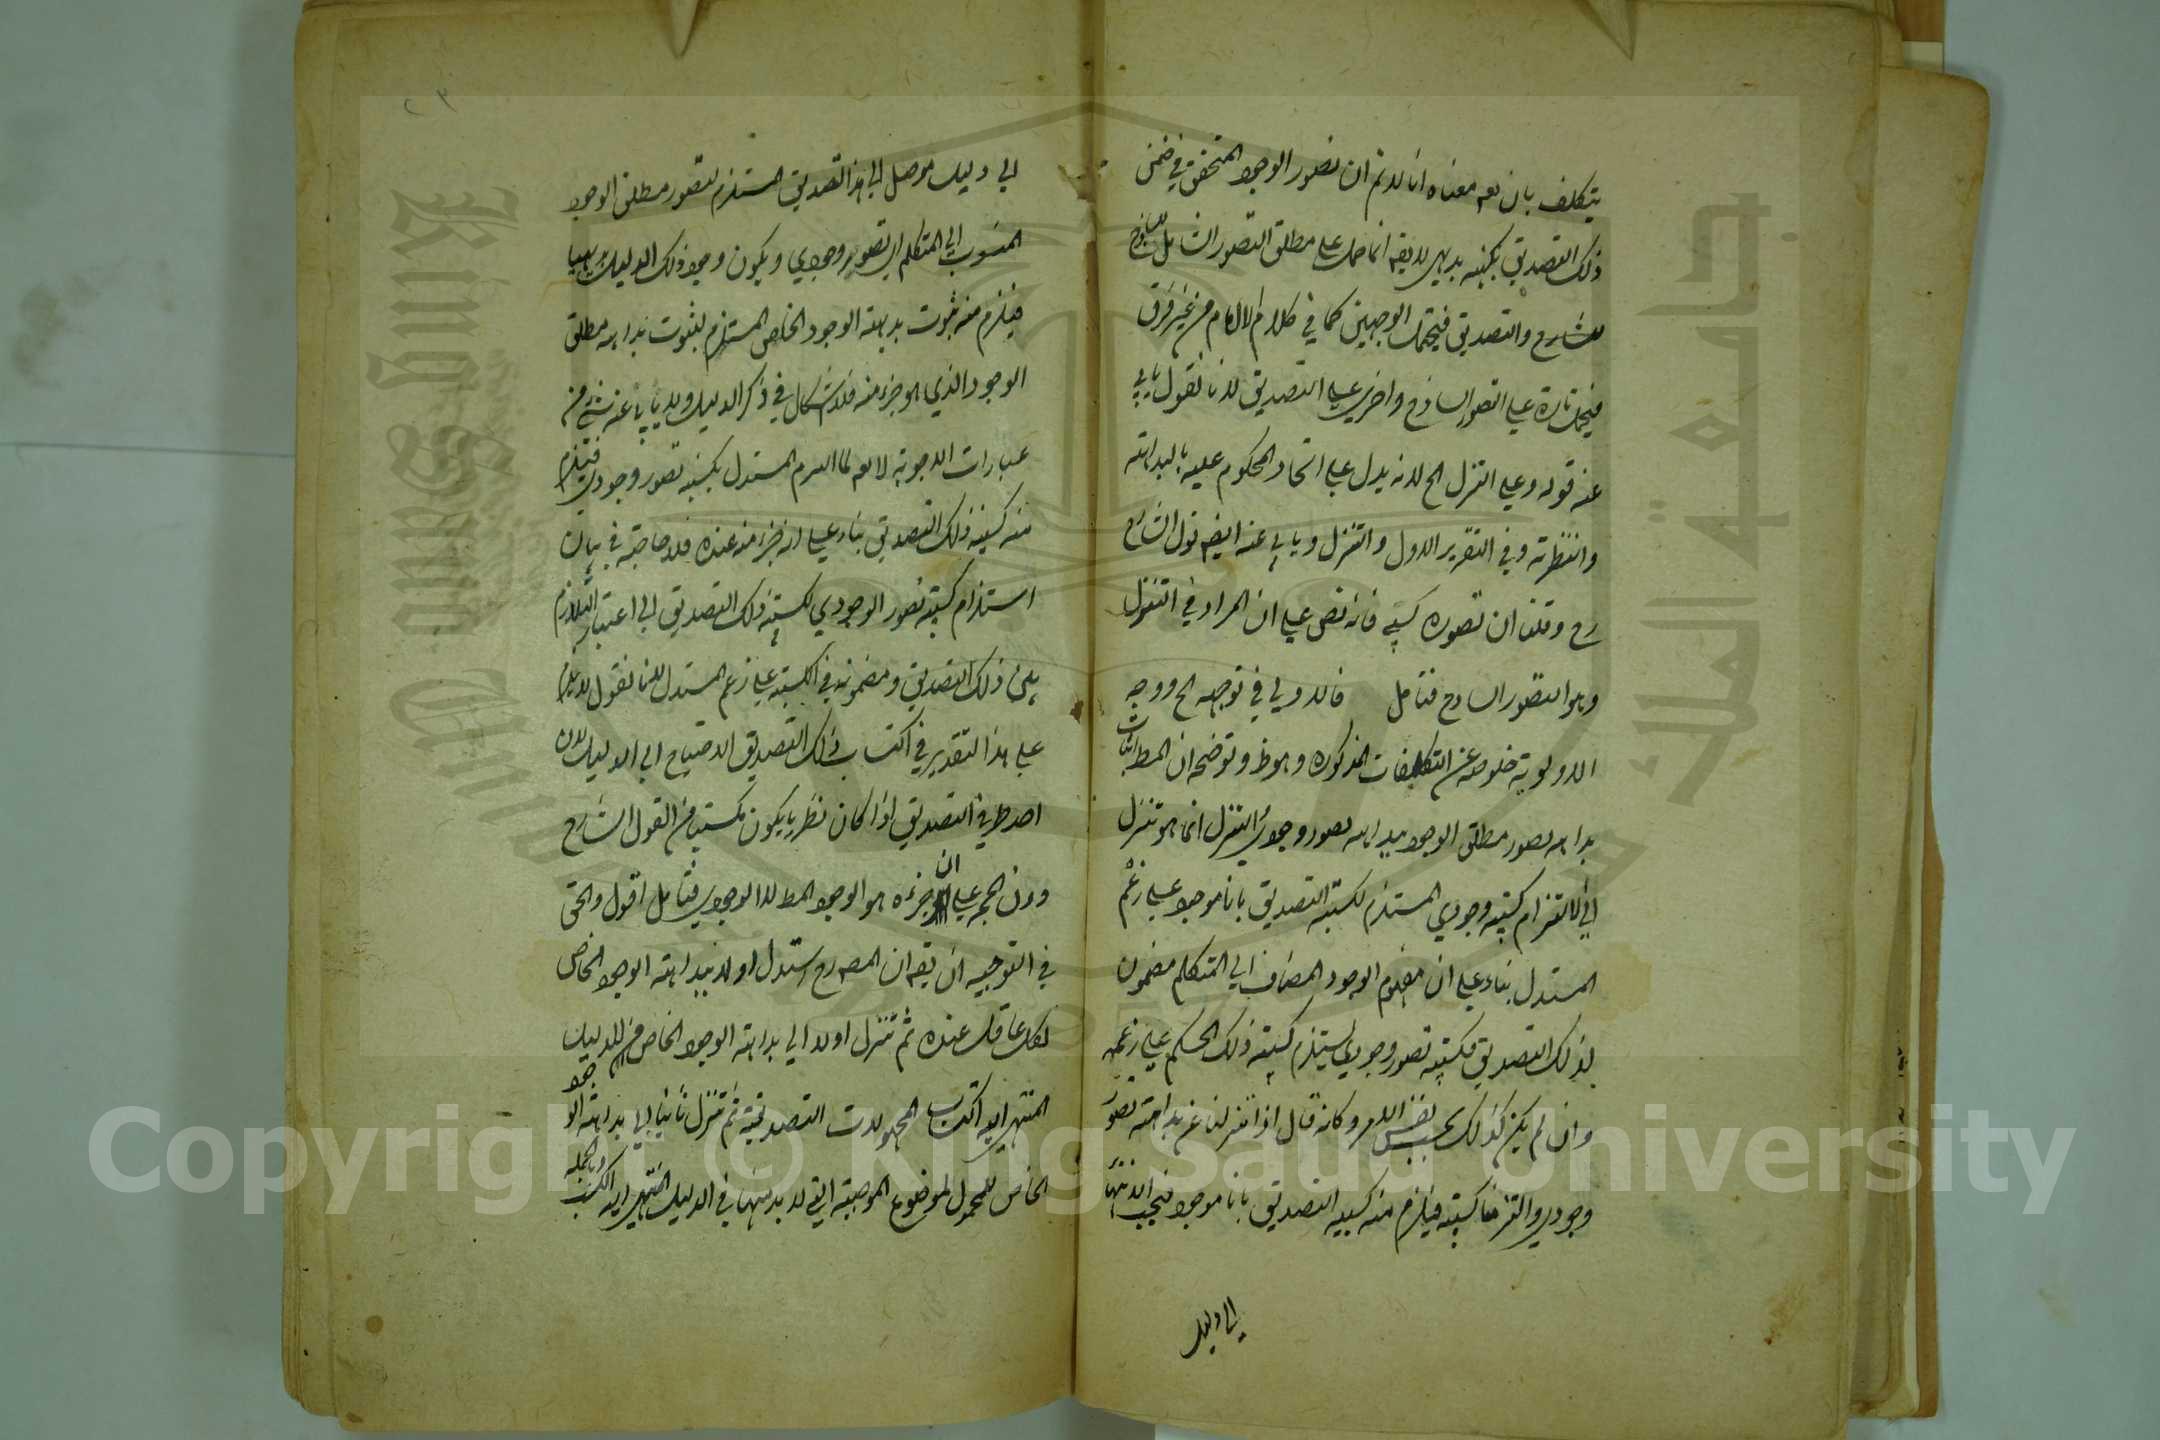 يتكلف بان يقه معناه انا لا نم ان تصور الوجود المتحقق في ضمن
ذلك التصديق بكنهه بديهي لا يقه انما حمل على مطلق التصور الشامل للساذج
والتصديق فيحتمل الوجهين كما في كلام الامام من غير فرق
فيحمل تارة على التصور الساذج واخرى على التصديق لانا نقول يابى
عنه قوله وعلى التنزل الخ لانه يدل على اتحاد المحكوم عليه بالبداهة
والنظرية في التقرير الاول والتنزل ويابى عنه ايضه قول الشارح
رح وقلنا ان تصوره كسبي فانه نص على ان المراد في التنزل
وهو التصور الساذج فتامل فالاولى في توجيه الخ ووجه
الاولوية خلوصه عن التكلفات المذكوره وهو ظ وتوضيحه ان المط اثبات
بداهه تصور مطلق الوجود ببداهه تصور وجودي التنزل انما هو تنزل
الى الالتزام كسبية وجودي المستلزم لكسبية التصديق بانا موجود على زعم
المستدل بناء على ان مفهوم الوجود المضاف الى المتكلم مضمون
لذلك التصديق فكسبية تصور وجودي يستلزم كسبية ذلك الحكم على زعمه
وان لم يكن كذلك بحسب نفس الامر وكانه قال اذا تنزلنا عن بداهة تصور
وجودي والتزمنا كسبيته فيلزم منه كسبية التصديق بانا موجود فيجب الانتهاء
الى دليل
الى دليل موصل الى هذا التصديق المستلزم لتصور مطلق الوجود
المنسوب الى المتكلم اى تصور وجودي ويكون وجود ذلك الدليل بديهيا
فيلزم منه ثبوت بديهة الوجود الخاص المستلزم لثبوت بداهه مطلق
الوجود الذي هو جزء منه فلا اشكال في ذكر الدليل ولا يابى عنه شئ من
عبارات الاجوبة لا يقه لما التزم المستدل بكسبية تصور وجودي فيلزم
منه كسبية ذلك التصديق بناء على انه جزء منه عنده فلا حاجة في بيان
استلزام كسبية تصور الوجودي لكسبية ذلك التصديق الى اعتبار التلازم
بين ذلك التصديق ومضمونه في الكسبية على زعم المستدل لانا نقول لا يلزم
على هذا التقدير في اكتساب ذلك التصديق الاحتياج الى الدليل لان
احد طرفي التصديق اذا كان نظريا يكون مكتسبا من القول الشارح
دون الحجه على ان جزءه هو الوجود المط لا الوجودي فتامل اقول والحق
في التوجيه ان يقه ان المصه رح استدل اولا ببداهة الوجود الخاص
لكل عاقل عنده ثم تنزل اولا الى بداهة الوجود الخاص من الدليل
المنتهى اليه اكتساب المجهولات التصديقية ثم تنزل ثانيا الى بداهة الوجود
الخاص للمحمول لموضوع الموجبة التي لا بد منها في الدليل المنتهى اليه الكسب
وبالجمله
Copyright © King Saud University
King Saud University
جامعة الملك سعود